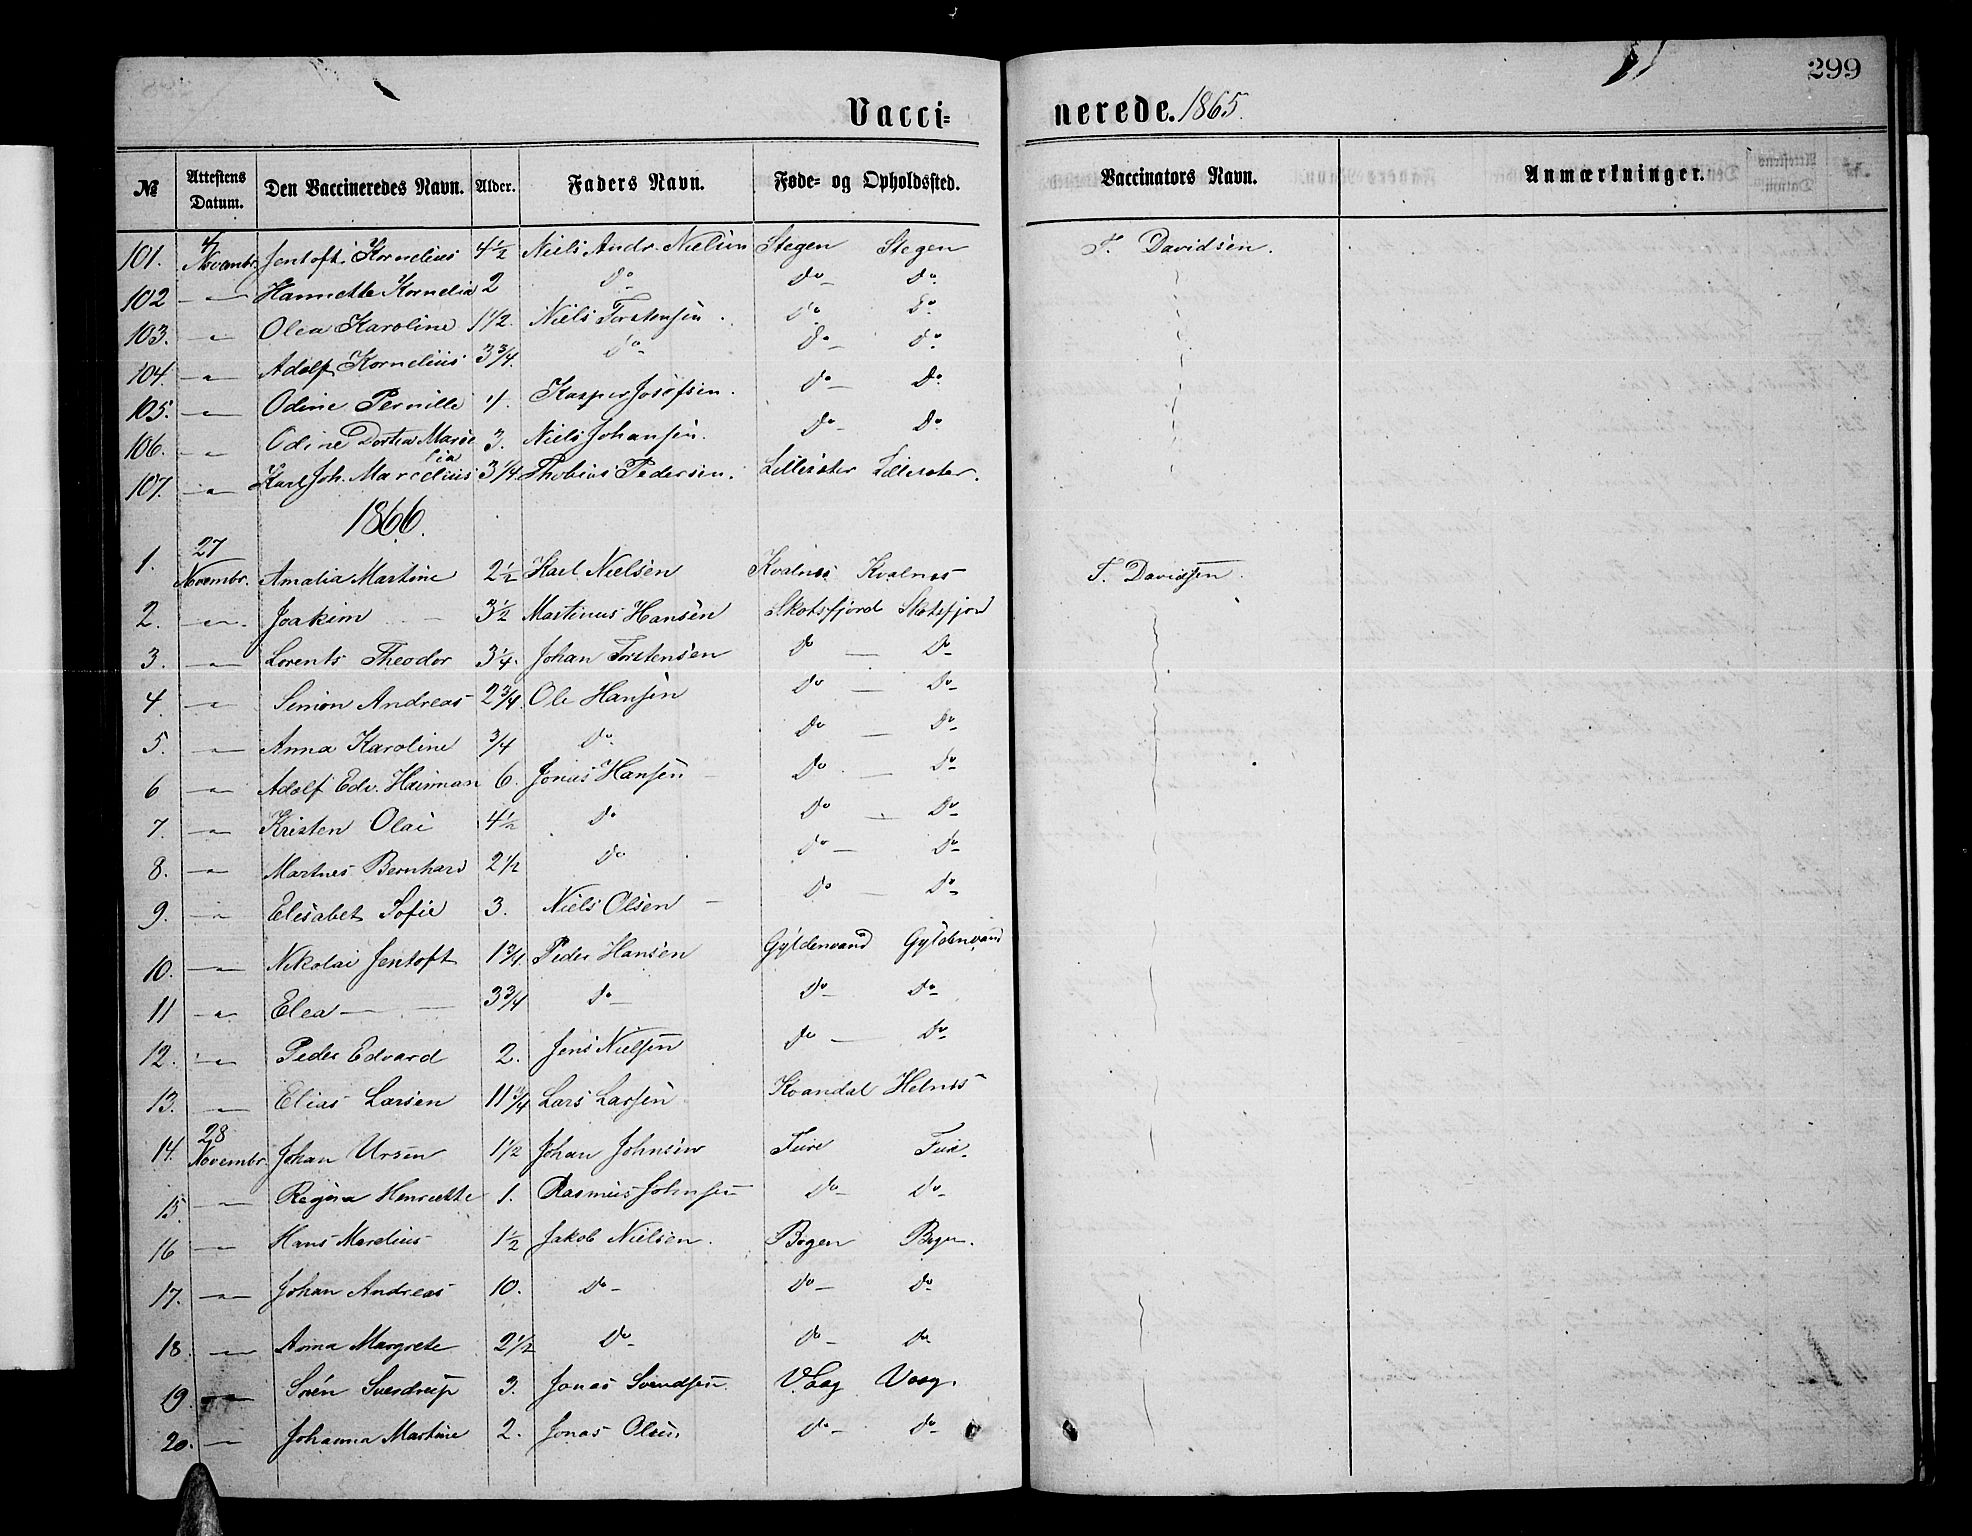 299
Vacci= nerede. 1865.
№ Attestens Datum. Den Vaccineredes Navn. Alder. Faders Navn. Føde- og Opholdssted. Vaccinators Navn. Anmærkninger.
101. 4/Novembr. Jentoft Kornelius 4½ Niels Andr. Nielsen Stegen Stegen T. Davidsen.
102 -"- Hannette Kornelia 2 do do do
103. -"- Olea Karoline 1½. Niels Torstensen. do do
104. -"- Adolf Kornelius 3¾. do do do
105. -"- Odine Pernille 4. Kasper Josefsen. do do
106. -"- Odine Dortea Marselia 3. Niels Johansen. do do
107. -"- Karl Joh. Marcelius 3¼ Thobias Pedersen. Lillesæter Lillesæter.
1866.
1. 27/Novembr. Amalia Martine 2½ Karl Nielsen Kvalnes Kvalnes T. Davidsen.
2. -"- Joakim 3½ Martinus Hansen Skotsfjord Skotsfjord
3. -"- Lorents Theodor 3¼. Johan Torstensen do do
4. -"- Simon Andreas 2¾ Ole Hansen do do
5. -"- Anna Karoline ¾ do do do
6 -"- Adolf Edv. Hainman 6. Jonas Hansen do do
7. -"- Kristen Olai 4½ do do do
8. -"- Martnes Bernhard 2½ do do do
9. -"- Elisabet Sofie 3. Niels Olsen do do
10. -"- Nikolai Jentoft 1¾. Peder Hansen Gyldenvand Gyldenvand
11 -"- Elea 3¾ do do do
12. -"- Peder Edvard 2. Jens Nielsen do do
13. -"- Elias Larsen 11¾ Lars Larsen Kvandal Helnes
14. 28/Novembr. Johan Ursin 1½ Johan Johnsen Fure Fure
15. -"- Regina Henriette 1. Rasmus Johnsen do do
16 -"- Hans Marelius 1½ Jakob Nielsen. Bogen Bogen.
17. -"- Johan Andreas 10. do do do
18. -"- Anna Margrete 2½ do do do
19. -"- Sørén Sverdrup 3. Jonas Svendsen Vaag Vaag.
20. -"- Johanna Martine 2. Jonas Olsen do do